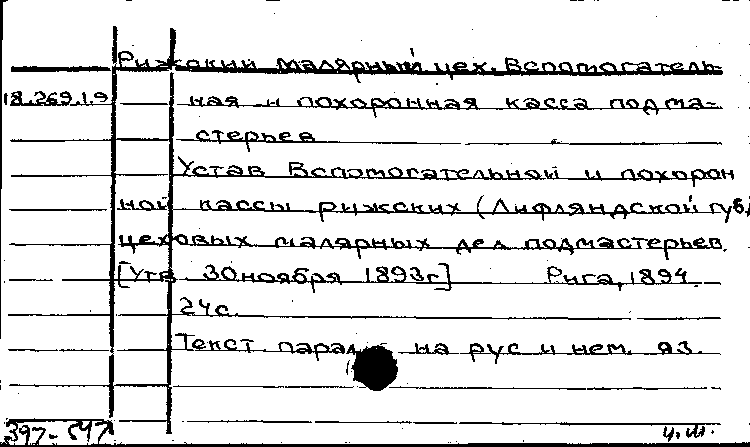 Рижский малярный цех. Вспомогатель-
18.269.1.9 ная и похоронная касса подма-
стерьев
Устав Вспомогательной и похорон
ной кассы рижских (Лифляндской губ.)
цеховых малярных дел подмастерьев.
[Утв. 30 ноября 1893г] Рига, 1894.
24с.
Текст парал. на рус и нем. яз.
397-547 ч.ш.